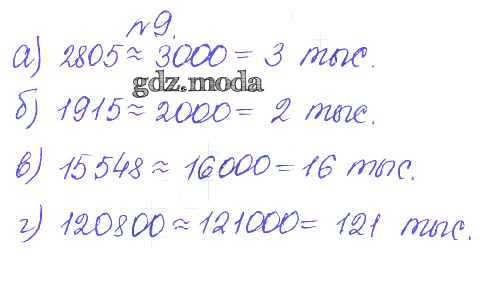 №9.
а) 2805 ≈ 3000 = 3 тыс.
gdz.moda
б) 1915 ≈ 2000 = 2 тыс.
в) 15548 ≈ 16000 = 16 тыс.
г) 120800 ≈ 121000 = 121 тыс.